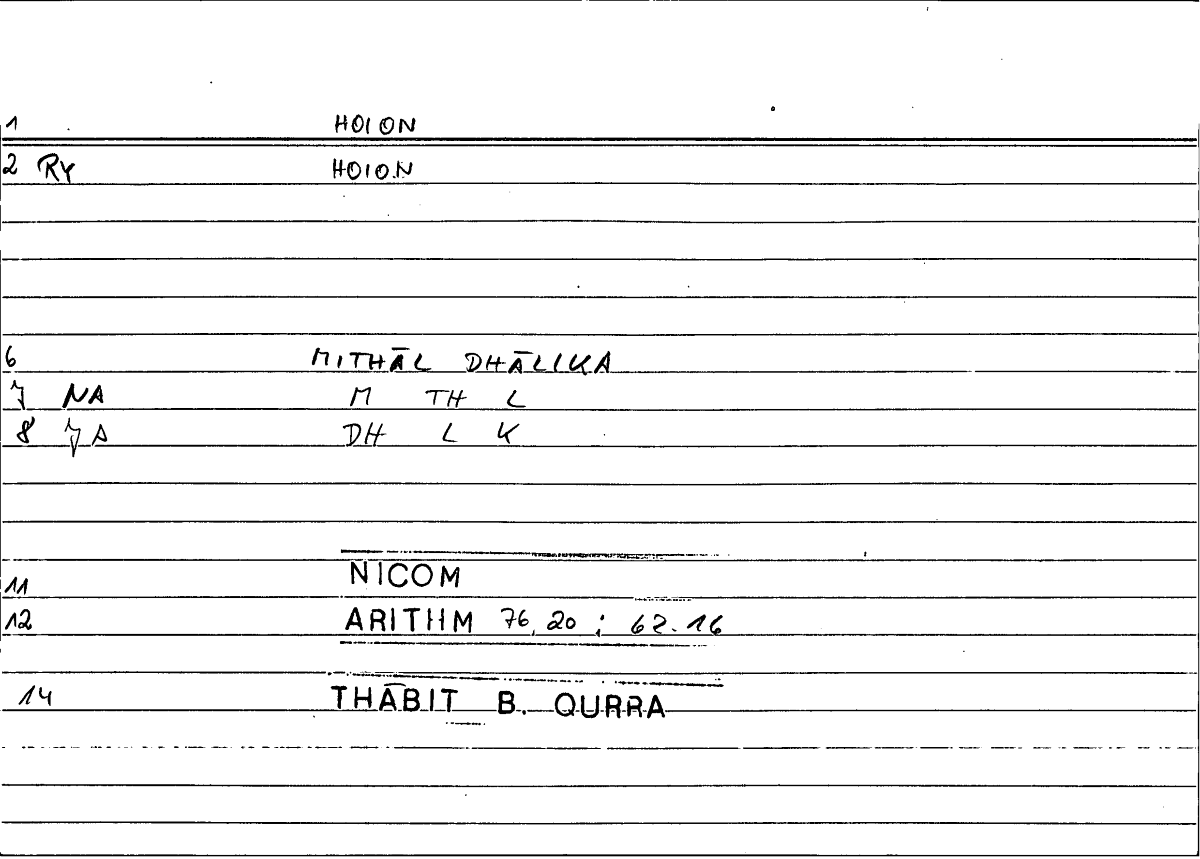 1 HOION
2 RY HOION
6 MITHĀL DHĀLIKA
7 NA M TH L
8 JA DH L K
11 NICOM
12 ARITHM 76,20 ; 62.16
14 THĀBIT B. QURRA